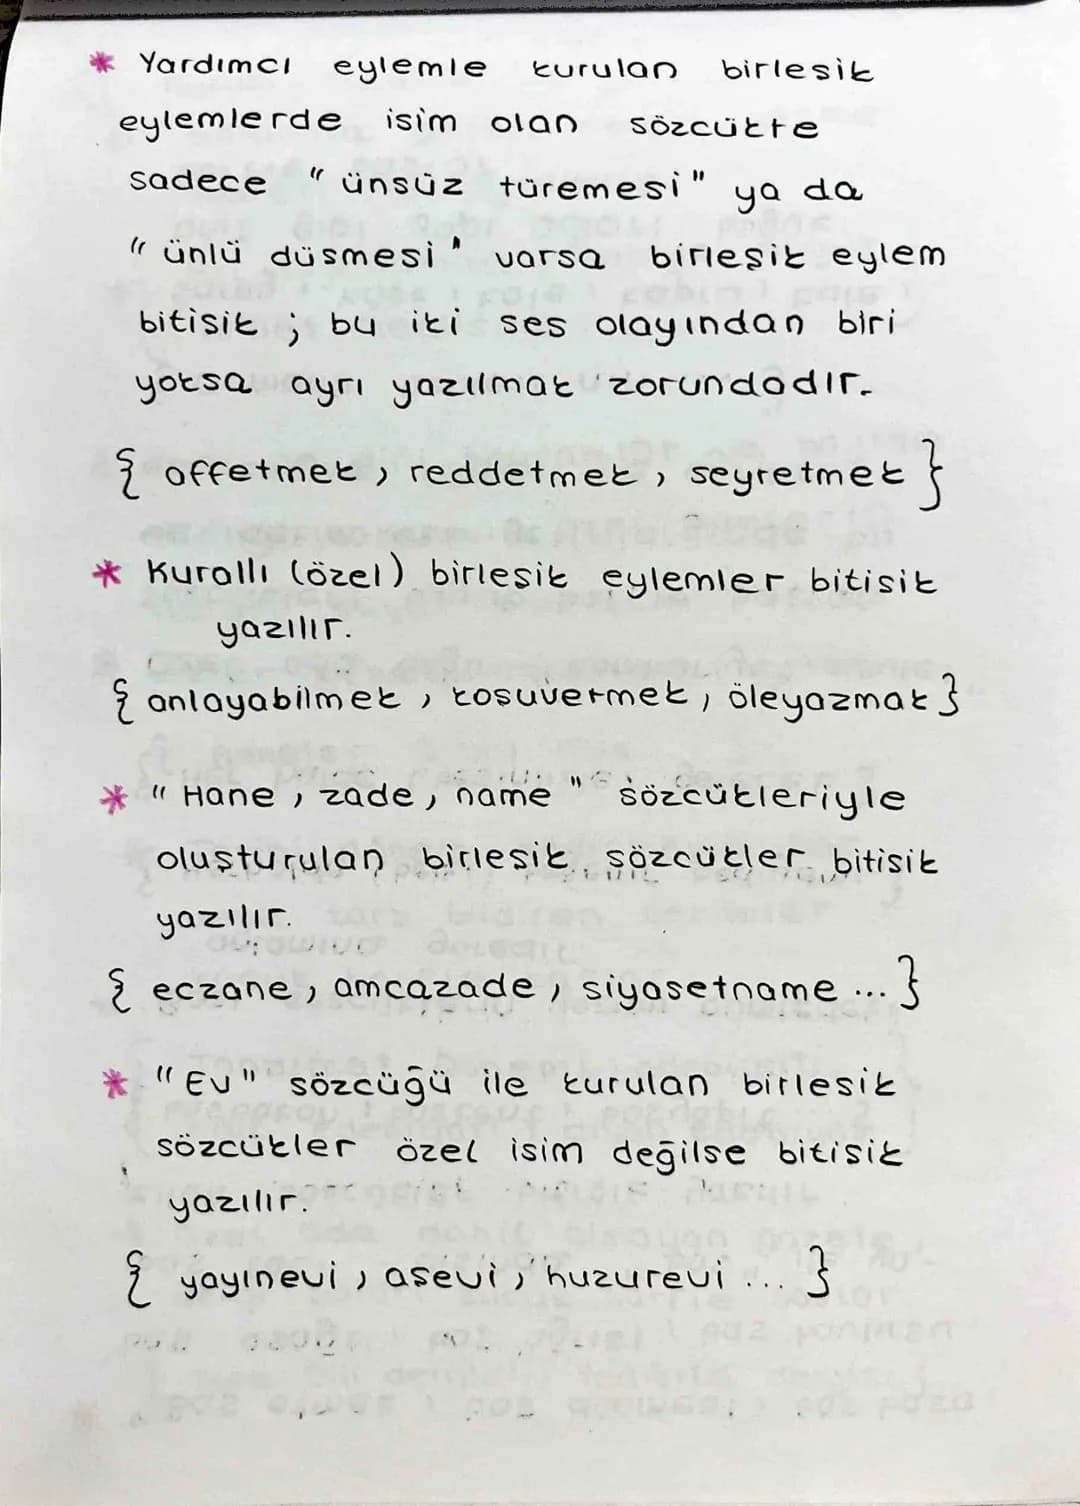 * Yardımcı eylemle kurulan birleşik
eylemlerde isim olan sözcükte
sadece "ünsüz türemesi" ya da
"ünlü düşmesi" varsa birleşik eylem
bitişik; bu iki ses olayından biri
yoksa ayrı yazılmak zorundadır.
{ affetmek, reddetmek, seyretmek }
* Kurallı (özel) birleşik eylemler bitişik
yazılır.
{ anlayabilmek, koşuvermek, öleyazmak }
* "Hane, zade, name" sözcükleriyle
oluşturulan birleşik sözcükler bitişik
yazılır.
{ eczane, amcazade, siyasetname ... }
* "Ev" sözcüğü ile kurulan birleşik
sözcükler özel isim değilse bitişik
yazılır.
{ yayınevi, aşevi, huzurevi ... }